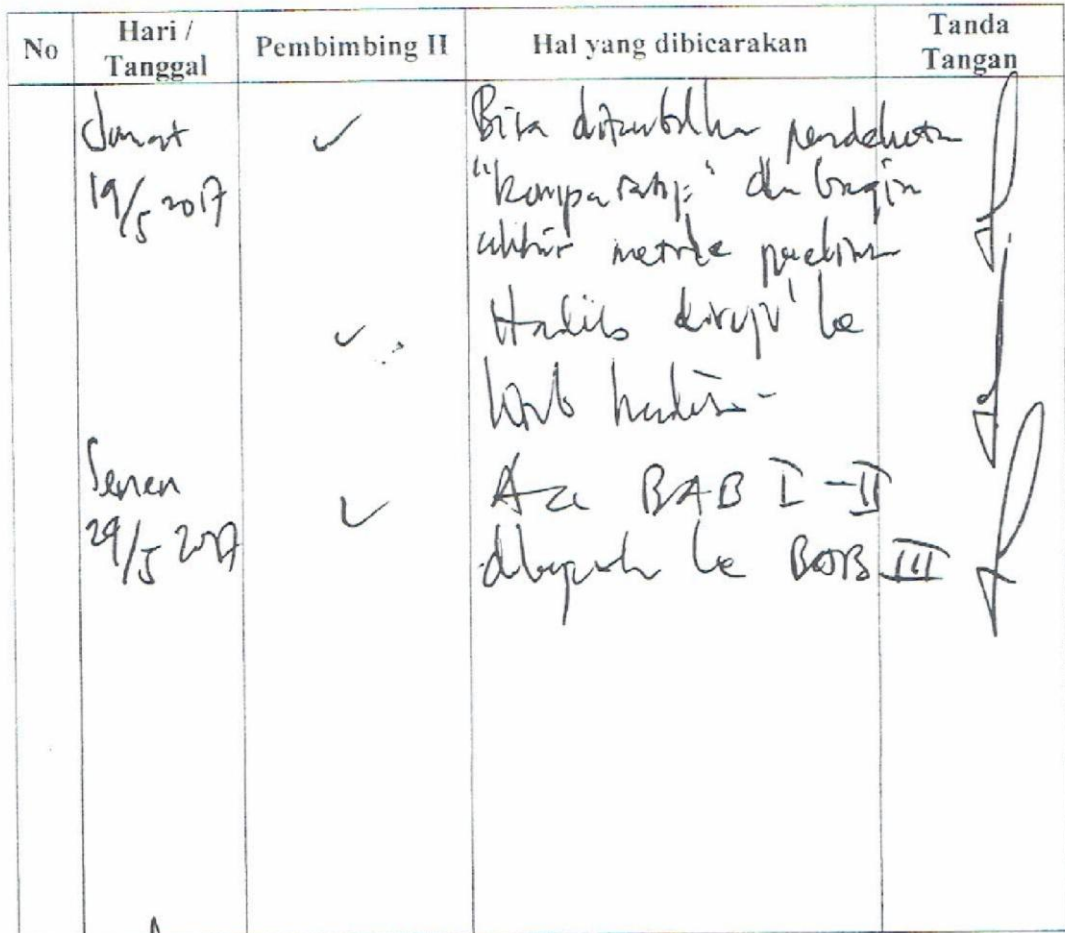 No
Hari / Tanggal
Pembimbing II
Hal yang dibicarakan
Tanda Tangan
Jumat
19/5 2017
✓
Bisa ditambahkan pendekatan
"komparatif" di bagian
akhir metode penelitian
✓
Hadits dirujuk ke
kitab hadits-
Senen
29/5 2017
✓
Acc BAB I-II
ke BAB III